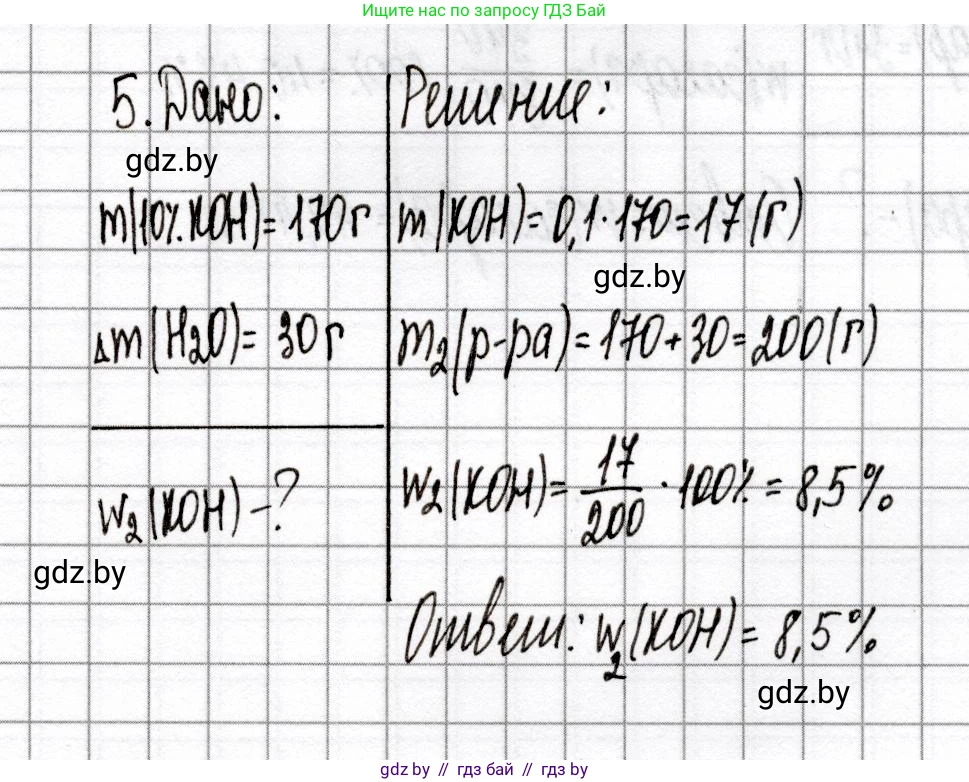 Ищите нас по запросу ГДЗ Бай
5. Дано:
gdz.by
m(10% KOH) = 170 г
Δm(H2O) = 30 г
w2(KOH) - ?
gdz.by
Решение:
m(KOH) = 0,1 · 170 = 17 (г)
gdz.by
m2(р-ра) = 170 + 30 = 200 (г)
w2(KOH) = 17/200 · 100% = 8,5 %
Ответ: w2(KOH) = 8,5 %
gdz.by
gdz.by // гдз бай // гдз by